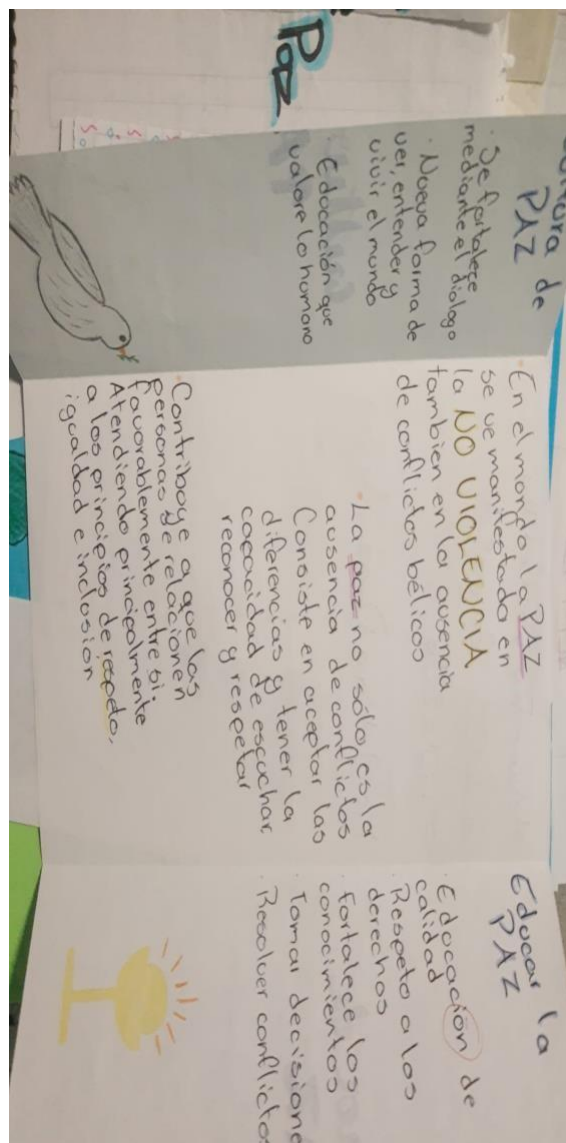 Paz
Cultura de
PAZ
· Se fortalece
mediante el dialogo
· Nueva forma de
ver, entender y
vivir el mundo
· Educación que
valore lo humano
· En el mundo la PAZ
se ve manifestado en
la NO VIOLENCIA
tambien en la ausencia
de conflictos bélicos
· La paz no sólo es la
ausencia de conflictos
Consiste en aceptar las
diferencias y tener la
capacidad de escuchar,
reconocer y respetar
· Contribuye a que las
personas se relacionen
favorablemente entre si.
Atendiendo principalmente
a los principios de respeto,
igualdad e inclusión
Educar la
PAZ
· Educación de
calidad
· Respeto a los
derechos
· Fortalece los
conocimientos
· Tomar decisione
· Resolver conflictos